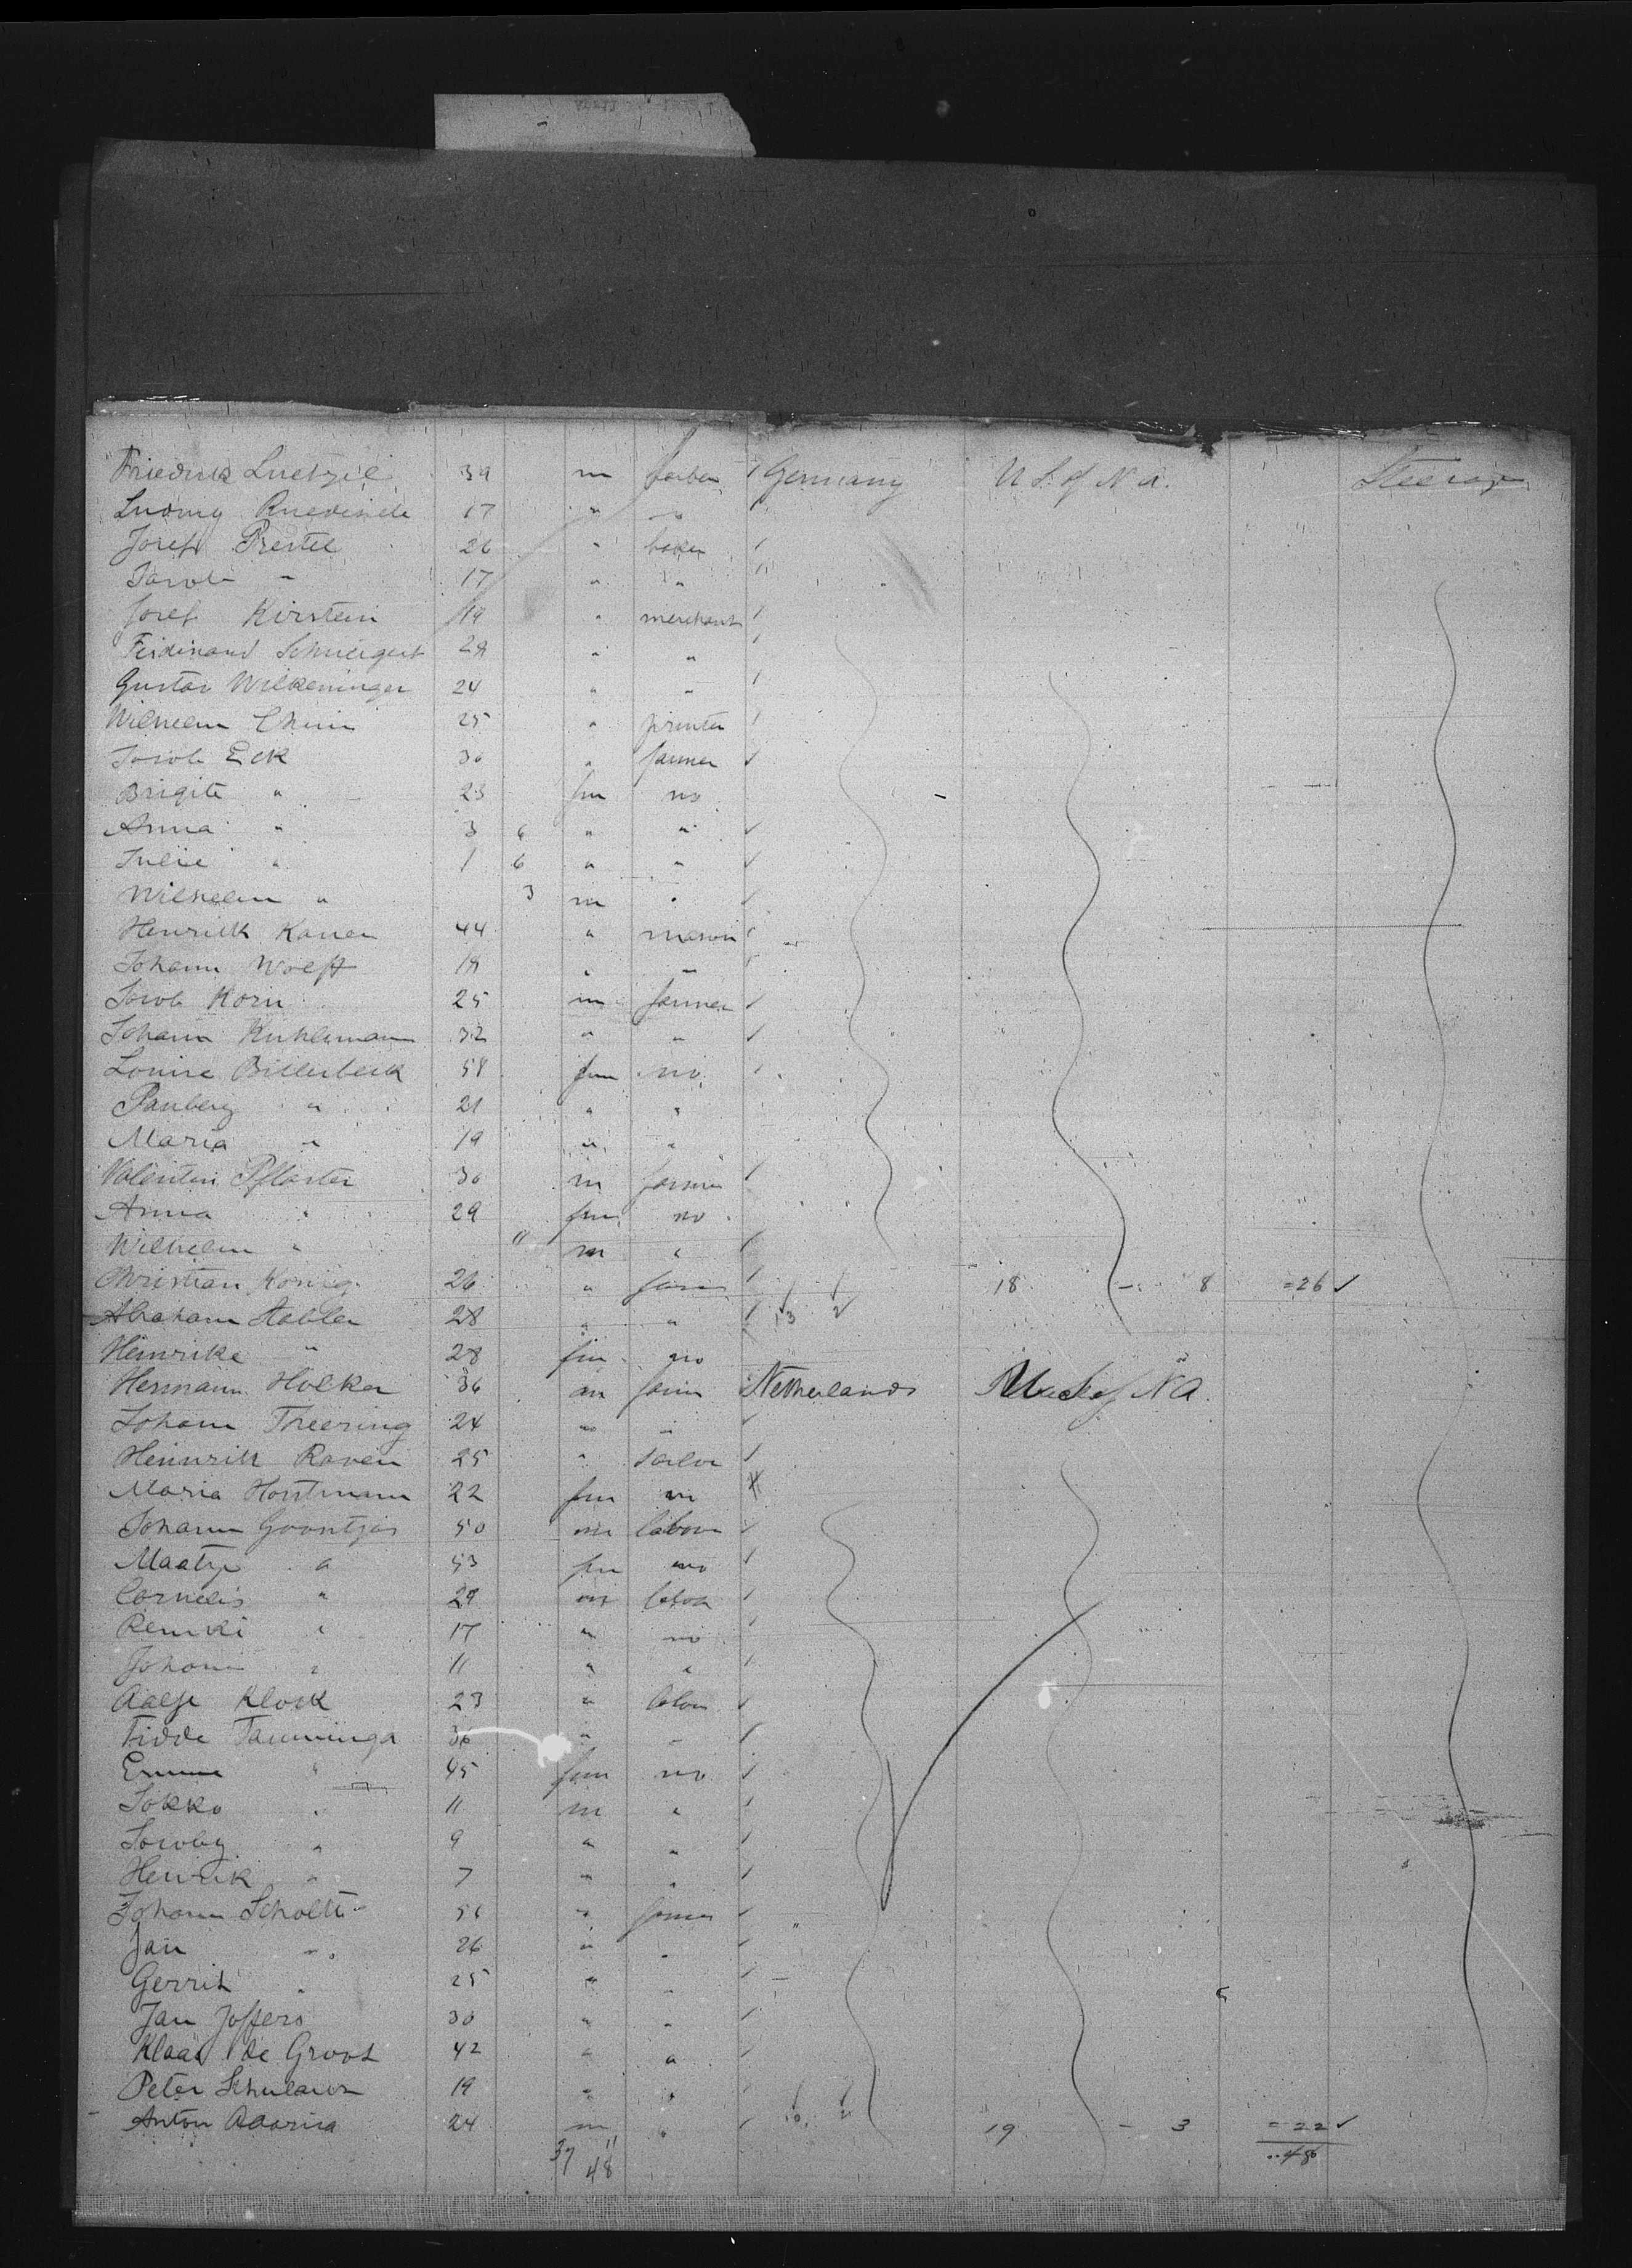 Friedrik Luetzel 39 m farber Germany U S. of N A. Steerage
Ludwig 17 "
Josef Prestel 26 " baker
Jacob " 17 " "
Josef Kirstein 19 " merchant
Ferdinand 28 " "
Gustav Wilkeninger 24 " "
Wilhelm 25 " printer
Jacob Eck 30 " farmer
Brigite " 23 fm no
Anna " 3 6 " "
Julie " 1 6 " "
Wilhelm " 3 m "
Henrick 44 " mason
Johann Wolff 18 " "
Jacob Korn 25 m farmer
Johann Kuhlemann 32 " "
Louise Billerbeck 58 fm no
" 21 " "
Maria " 19 " "
Valentin Pflaster 30 m farmer
Anna " 29 fm no
Wilhelm " 11 m "
Christian König 26 " farm 18 - 8 =26
Abraham Stabler 28 " " 13 2
Heinrike " 28 fm no
Hermann Holker 36 m farm Netherlands U. S. of N A.
Johann Theering 24 " "
Heinrich Raven 25 " tailor
Maria Horstmann 22 fm no
Johann Goontjes 50 m labour
Maatje " 53 fm no
Cornelis " 28 m labour
" 17 " no
Johann " 11 " "
Aalje Klock 23 " labour
Fidde Tamminga 36 " "
Emme " 45 fm no
Jokko " 11 m "
" 9 " "
Henrik " 7 " "
Johann Scholte 56 " farmer
Jan " 26 " "
Gerrit " 25 " "
Jan Joffers 30 " "
Klaas de Groot 42 " "
Peter 19 " "
Anton 24 m " 19 - 3 =22
37 11 48
48